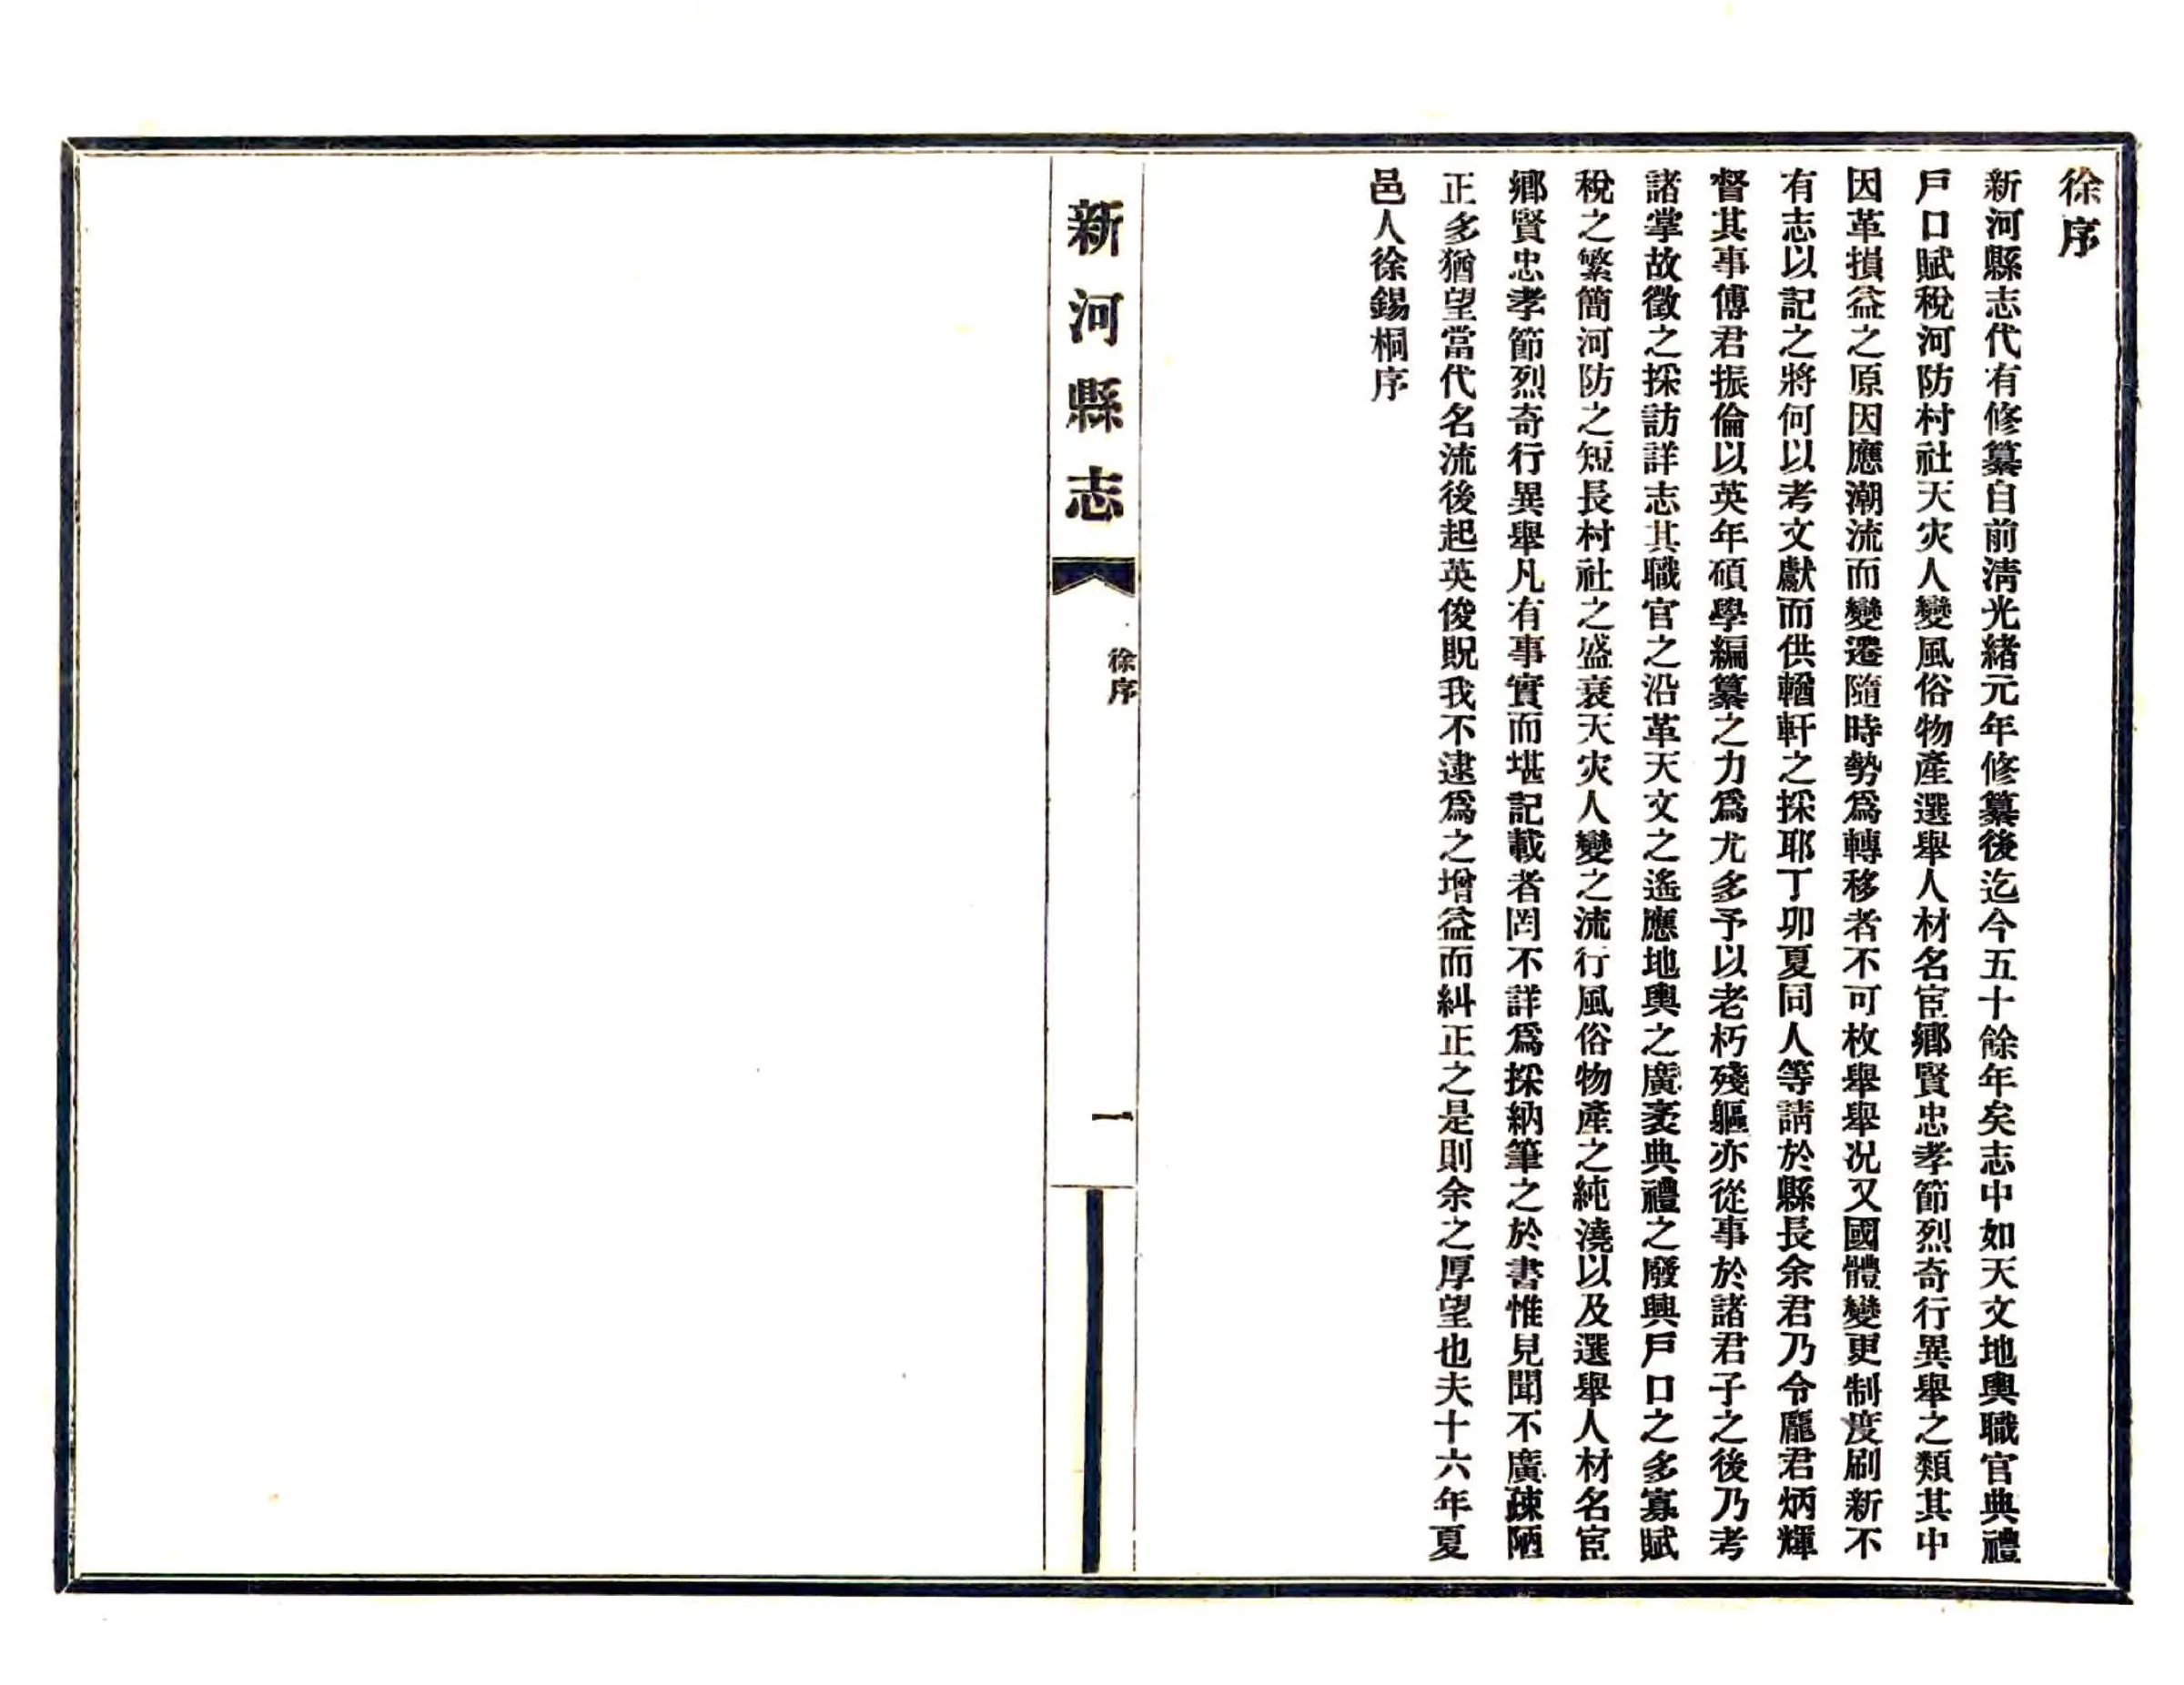 徐序
新河縣志代有修纂自前淸光緖元年修纂後迄今五十餘年矣志中如天文地輿職官典禮
戶口賦稅河防村社天灾人變風俗物產選舉人材名宦鄉賢忠孝節烈奇行異舉之類其中
因革損益之原因應潮流而變遷隨時勢爲轉移者不可枚舉舉况又國體變更制度刷新不
有志以記之將何以考文獻而供輶軒之採耶丁卯夏同人等請於縣長余君乃令龐君炳輝
督其事傅君振倫以英年碩學編纂之力爲尤多予以老朽殘軀亦從事於諸君子之後乃考
諸掌故徵之採訪詳志其職官之沿革天文之遙應地輿之廣袤典禮之廢興戶口之多寡賦
稅之繁簡河防之短長村社之盛衰天灾人變之流行風俗物產之純澆以及選舉人材名宦
鄉賢忠孝節烈奇行異舉凡有事實而堪記載者罔不詳爲採納筆之於書惟見聞不廣疎陋
正多猶望當代名流後起英俊貺我不逮爲之增益而糾正之是則余之厚望也夫十六年夏
邑人徐錫桐序
新河縣志
徐序
一